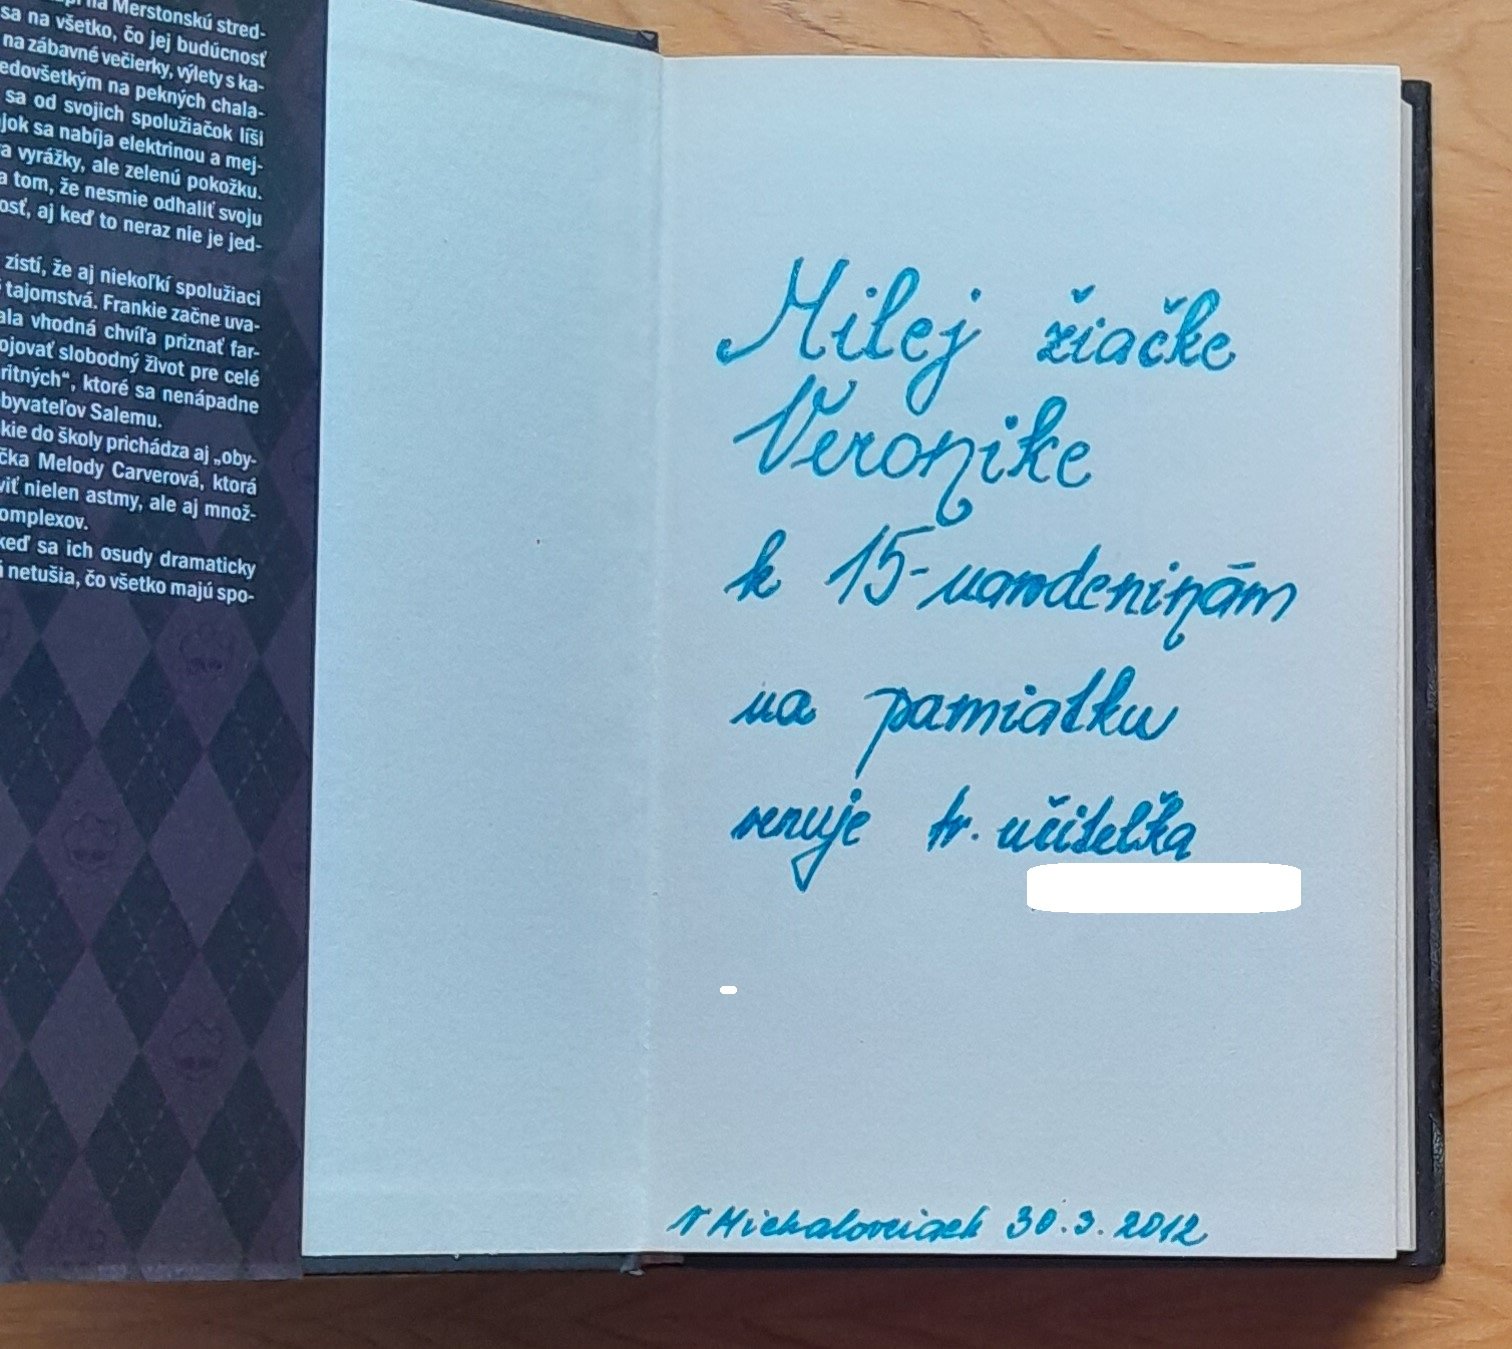 na Merstonskú stred-
sa na všetko, čo jej budúcnosť
na zábavné večierky, výlety s ka-
edovšetkým na pekných chala-
sa od svojich spolužiačok líši
jok sa nabíja elektrinou a mej-
a vyrážky, ale zelenú pokožku.
a tom, že nesmie odhaliť svoju
osť, aj keď to neraz nie je jed-
zistí, že aj niekoľkí spolužiaci
tajomstvá. Frankie začne uva-
ala vhodná chvíľa priznať far-
ojovať slobodný život pre celé
ritných“, ktoré sa nenápadne
byvateľov Salemu.
kie do školy prichádza aj „oby-
čka Melody Carverová, ktorá
viť nielen astmy, ale aj množ-
omplexov.
keď sa ich osudy dramaticky
netušia, čo všetko majú spo-
Milej žiačke
Veronike
k 15-narodeninám
na pamiatku
venuje tr. učiteľka
V Michalovciach 30.3.2012